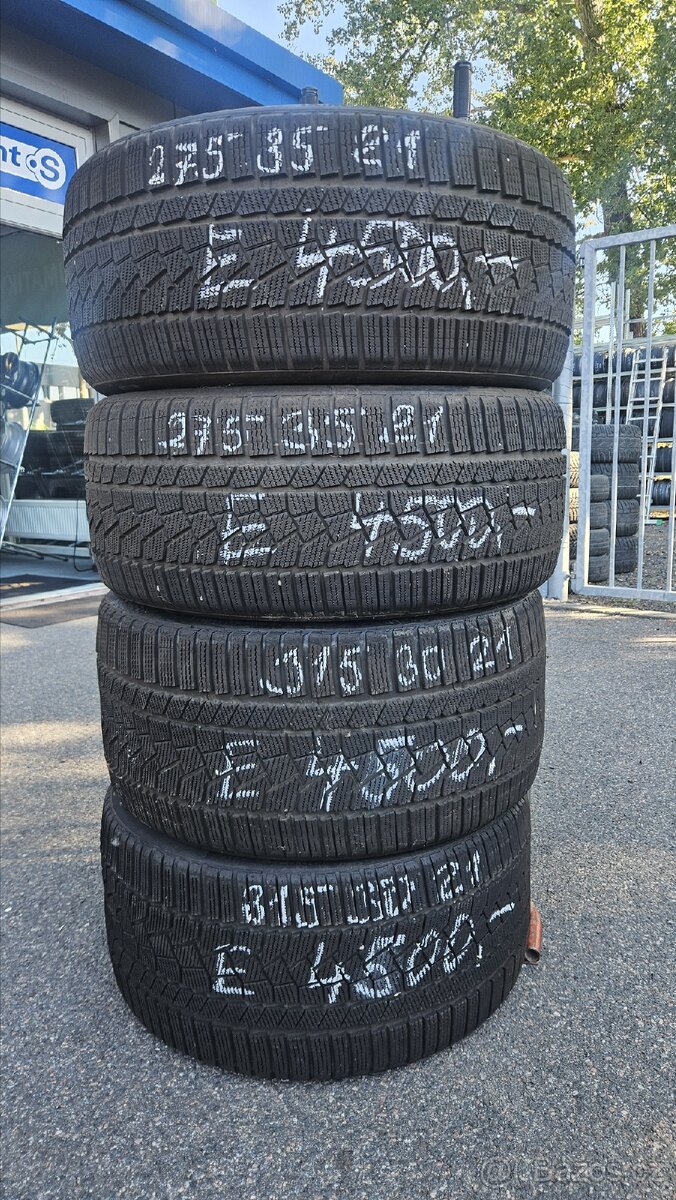 275 35 21
E 4500,-
275 35 21
E 4500,-
315 30 21
E 4500,-
315 30 21
E 4500,-
Bazos.cz